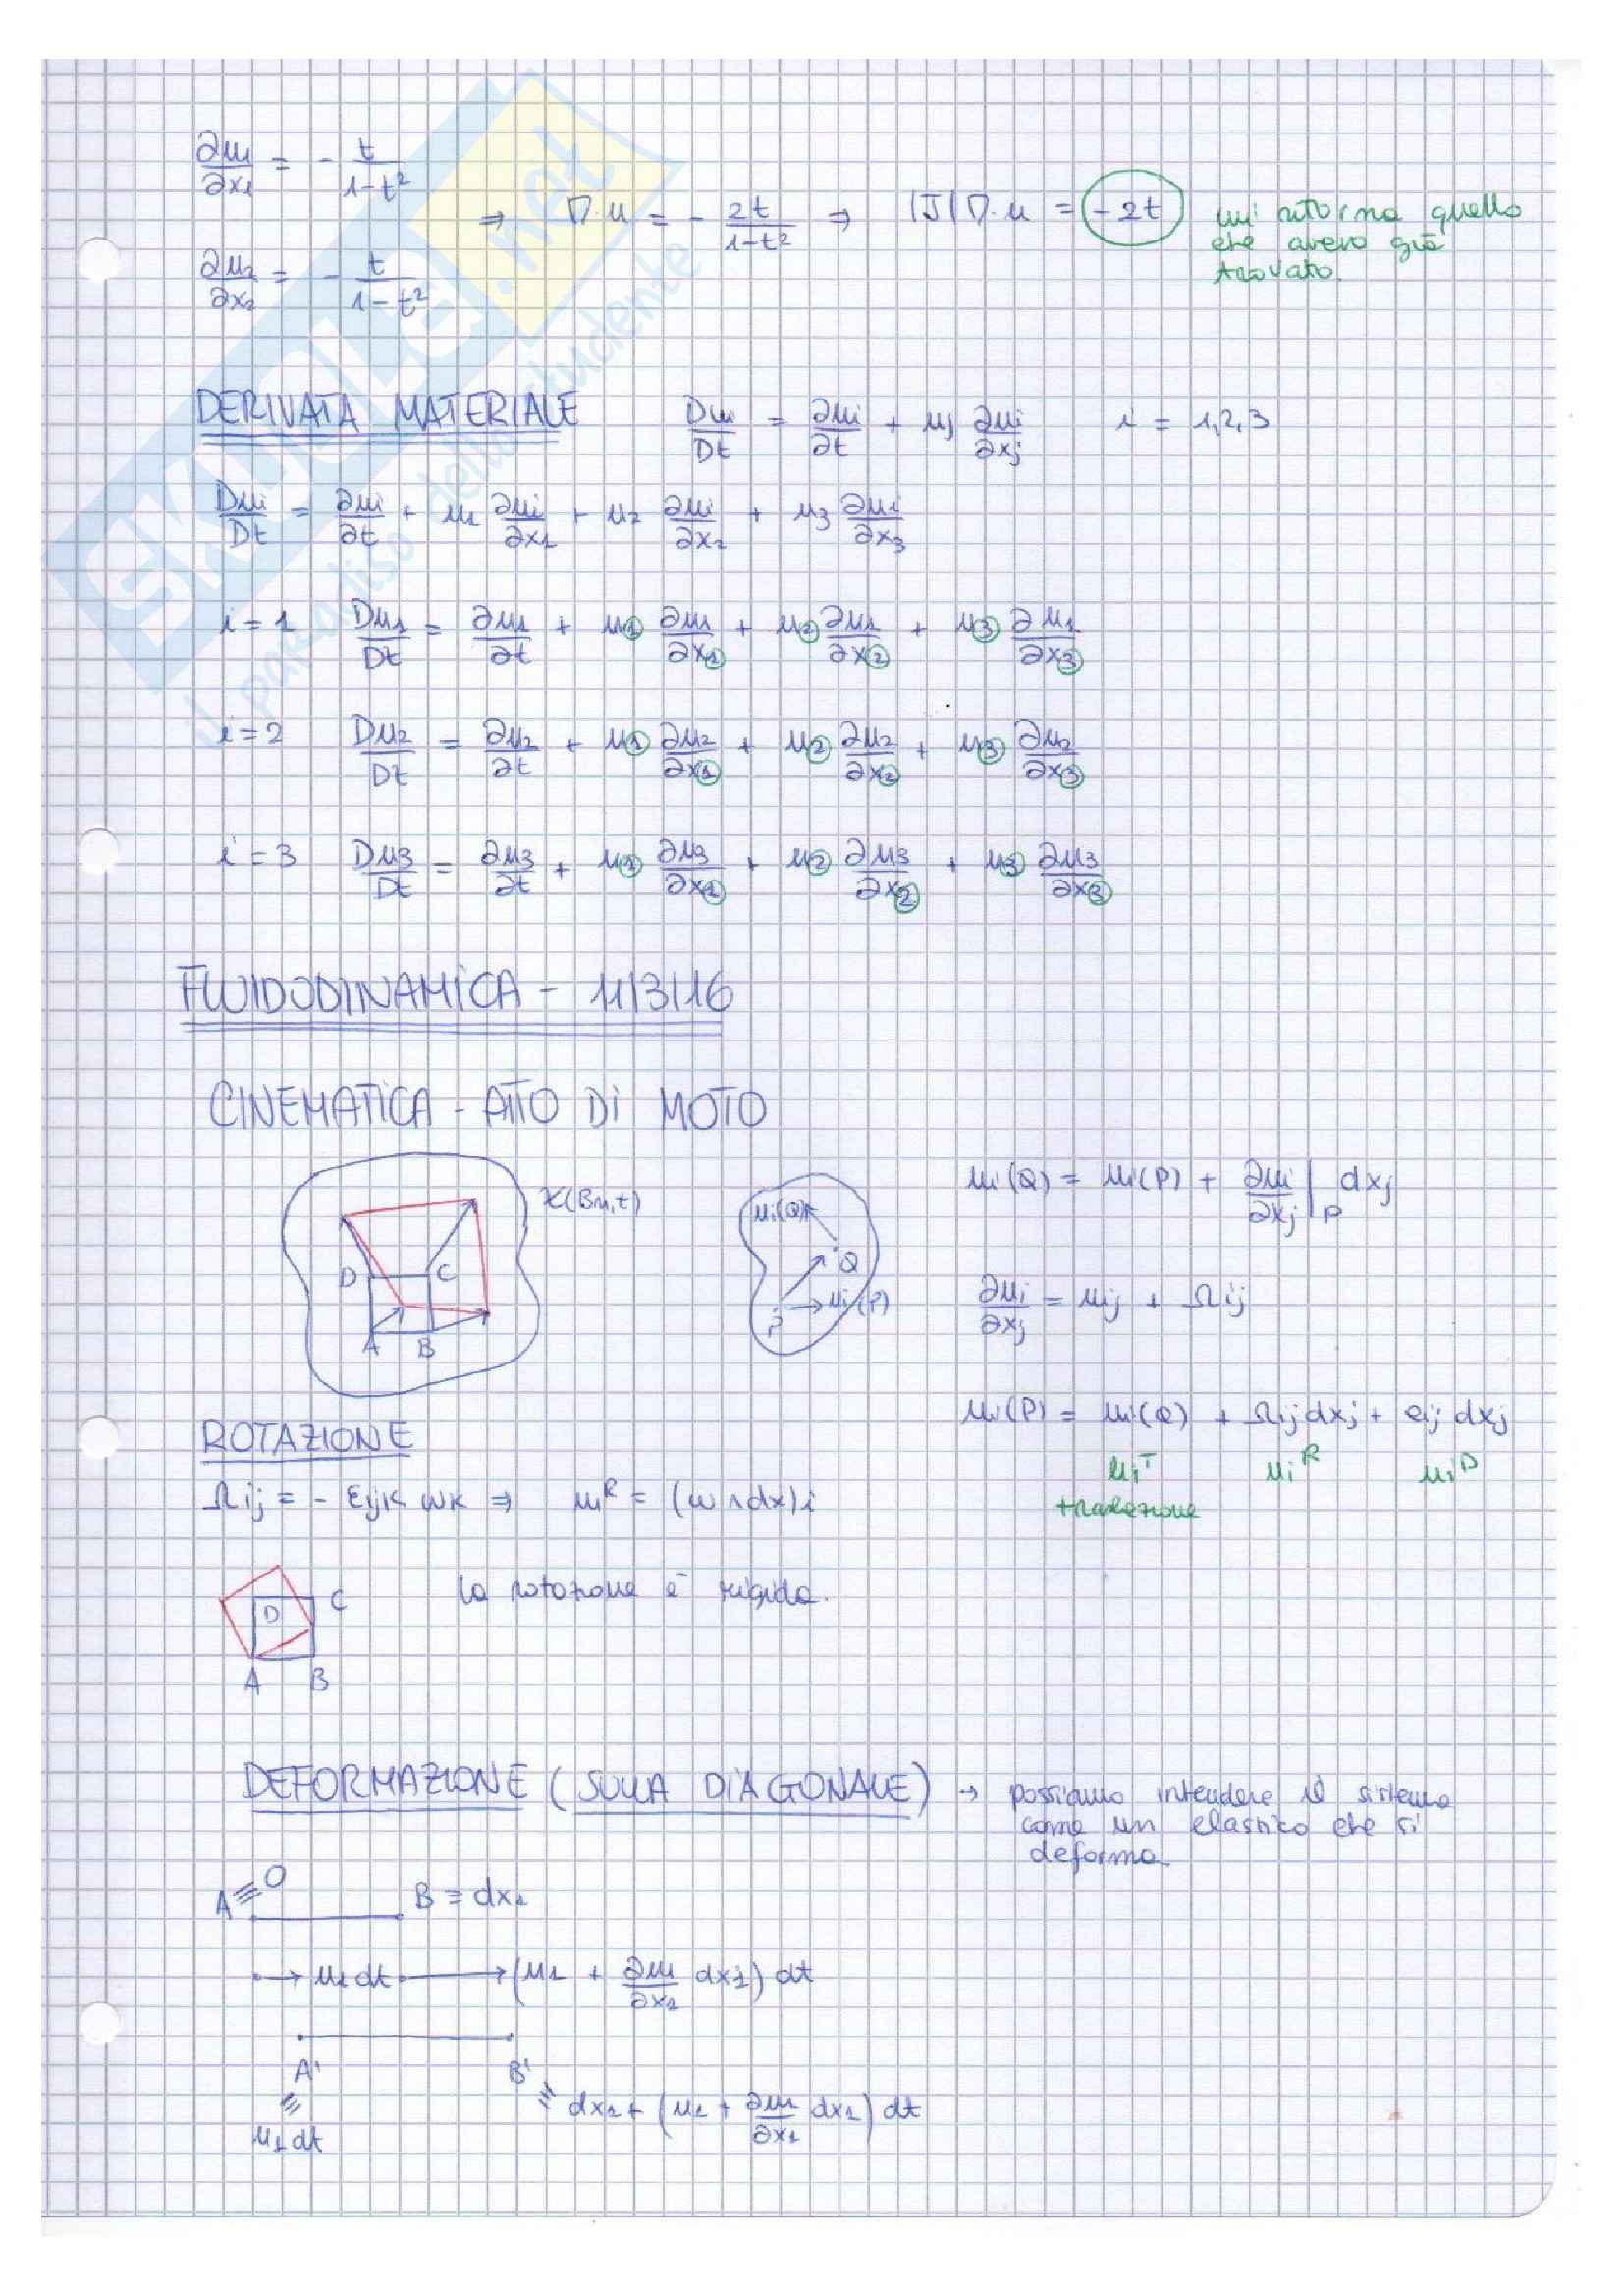 ∂u1/∂x1 = - t/(1-t²)
∂u2/∂x2 = - t/(1-t²)
⇒ ∇·u = - 2t/(1-t²) ⇒ |J|∇·u = -2t
mi ritorna quello
che avevo già
trovato.
DERIVATA MATERIALE Dui/Dt = ∂ui/∂t + uj ∂ui/∂xj i = 1,2,3
Dui/Dt = ∂ui/∂t + u1 ∂ui/∂x1 + u2 ∂ui/∂x2 + u3 ∂ui/∂x3
i=1 Du1/Dt = ∂u1/∂t + u1 ∂u1/∂x1 + u2 ∂u1/∂x2 + u3 ∂u1/∂x3
i=2 Du2/Dt = ∂u2/∂t + u1 ∂u2/∂x1 + u2 ∂u2/∂x2 + u3 ∂u2/∂x3
i=3 Du3/Dt = ∂u3/∂t + u1 ∂u3/∂x1 + u2 ∂u3/∂x2 + u3 ∂u3/∂x3
FLUIDODINAMICA - 11/3/16
CINEMATICA - ATTO DI MOTO
D C
A B
ui(Q)
Q
P ui(P)
ui(Q) = ui(P) + ∂ui/∂xj |P dxj
∂ui/∂xj = eij + Ωij
ui(P) = ui(Q) + Ωij dxj + eij dxj
uiT uiR uiD
traslazione
ROTAZIONE
Ωij = - εijk ωk ⇒ uiR = (ω∧dx)i
D C
A B
la rotazione è rigida.
DEFORMAZIONE (SULLA DIAGONALE) → possiamo intendere il sistema
come un elastico che si
deforma
A ≡ O B ≡ dx1
u1 dt (u1 + ∂u1/∂x1 dx1) dt
A' B'
≡ ≡ dx1 + (u1 + ∂u1/∂x1 dx1) dt
u1 dt
SKUOLA.net
il paradiso dello studente